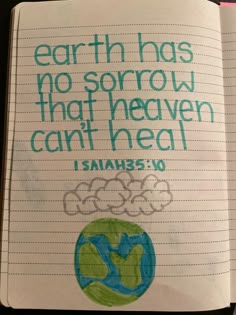 earth has
no sorrow
that heaven
can't heal
ISAIAH35:10